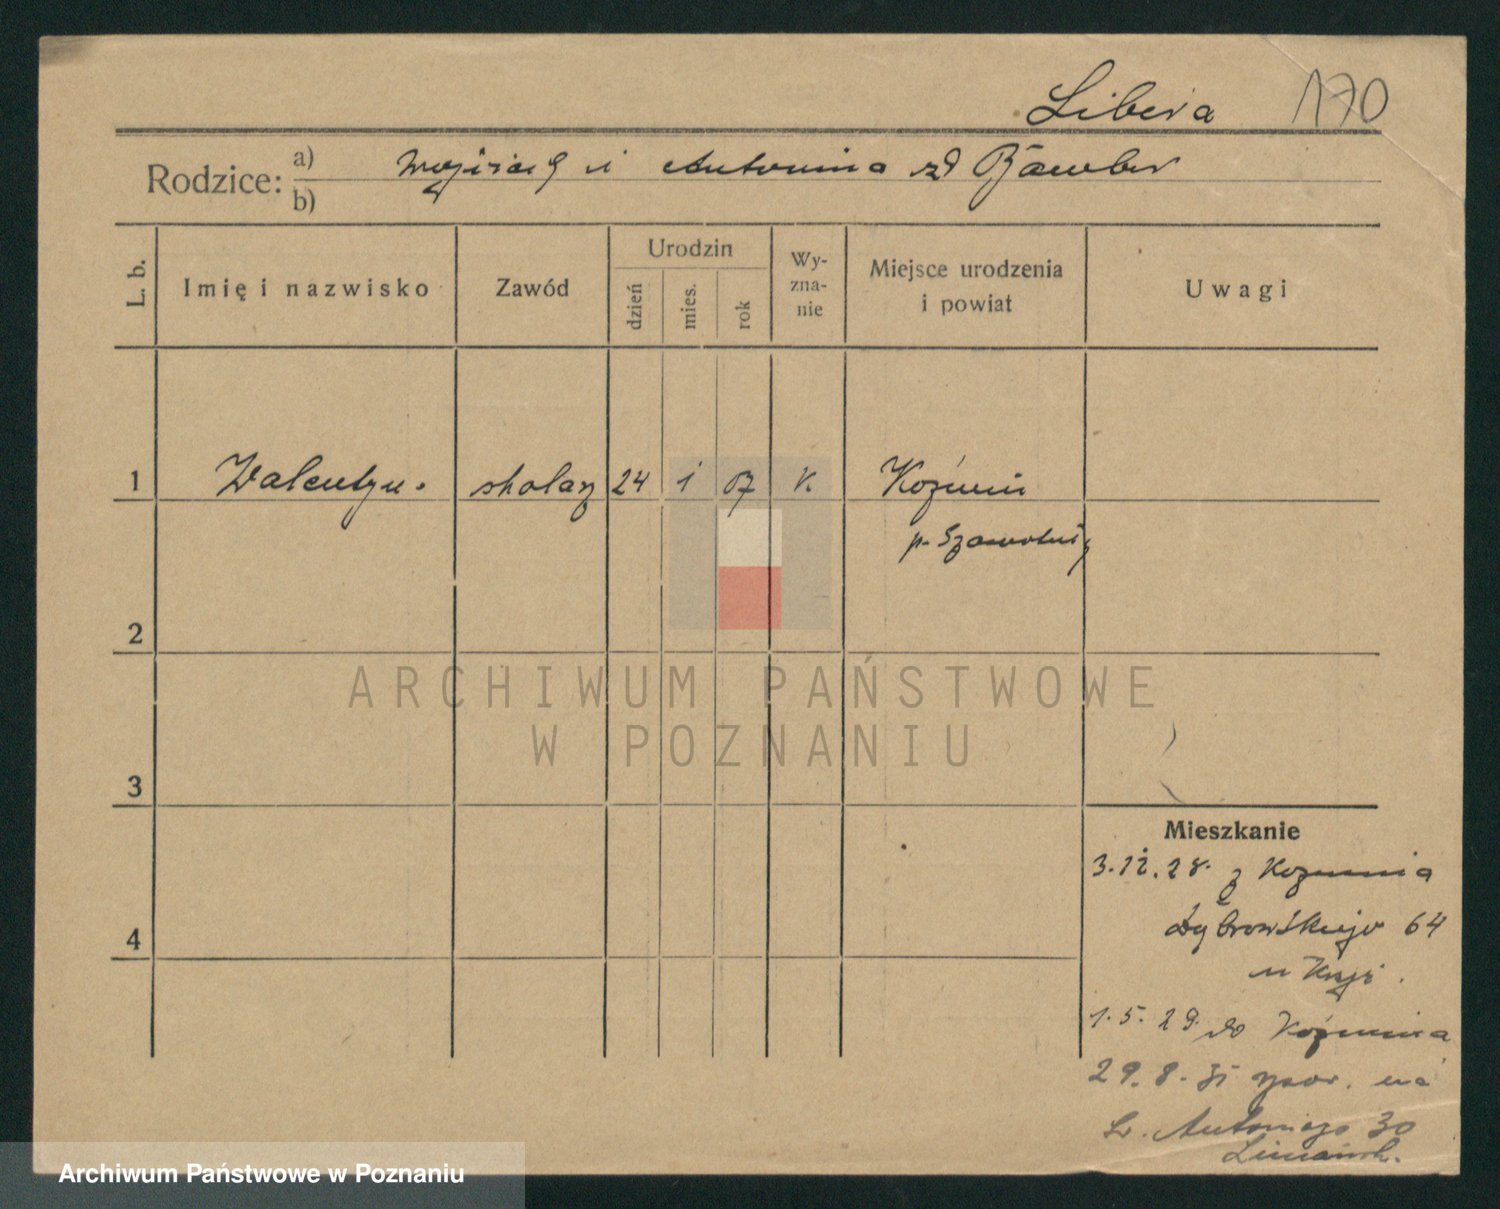 Libera 170
Rodzice: a) Wojciech i Antonina zd Bamber
b)
L. b. Imię i nazwisko Zawód Urodzin dzień mies. rok Wy-zna-nie Miejsce urodzenia i powiat Uwagi
1 Walentyn. stolarz 24 1 07 K Koźmin
p. Szamotuły
2
3
4
Mieszkanie
3.12.28. z Kozmina
Dąbrowskiego 64
u
1.5.29. do Koźmina
29.8.31 na
św. Antoniego 30
ARCHIWUM PAŃSTWOWE
W POZNANIU
Archiwum Państwowe w Poznaniu